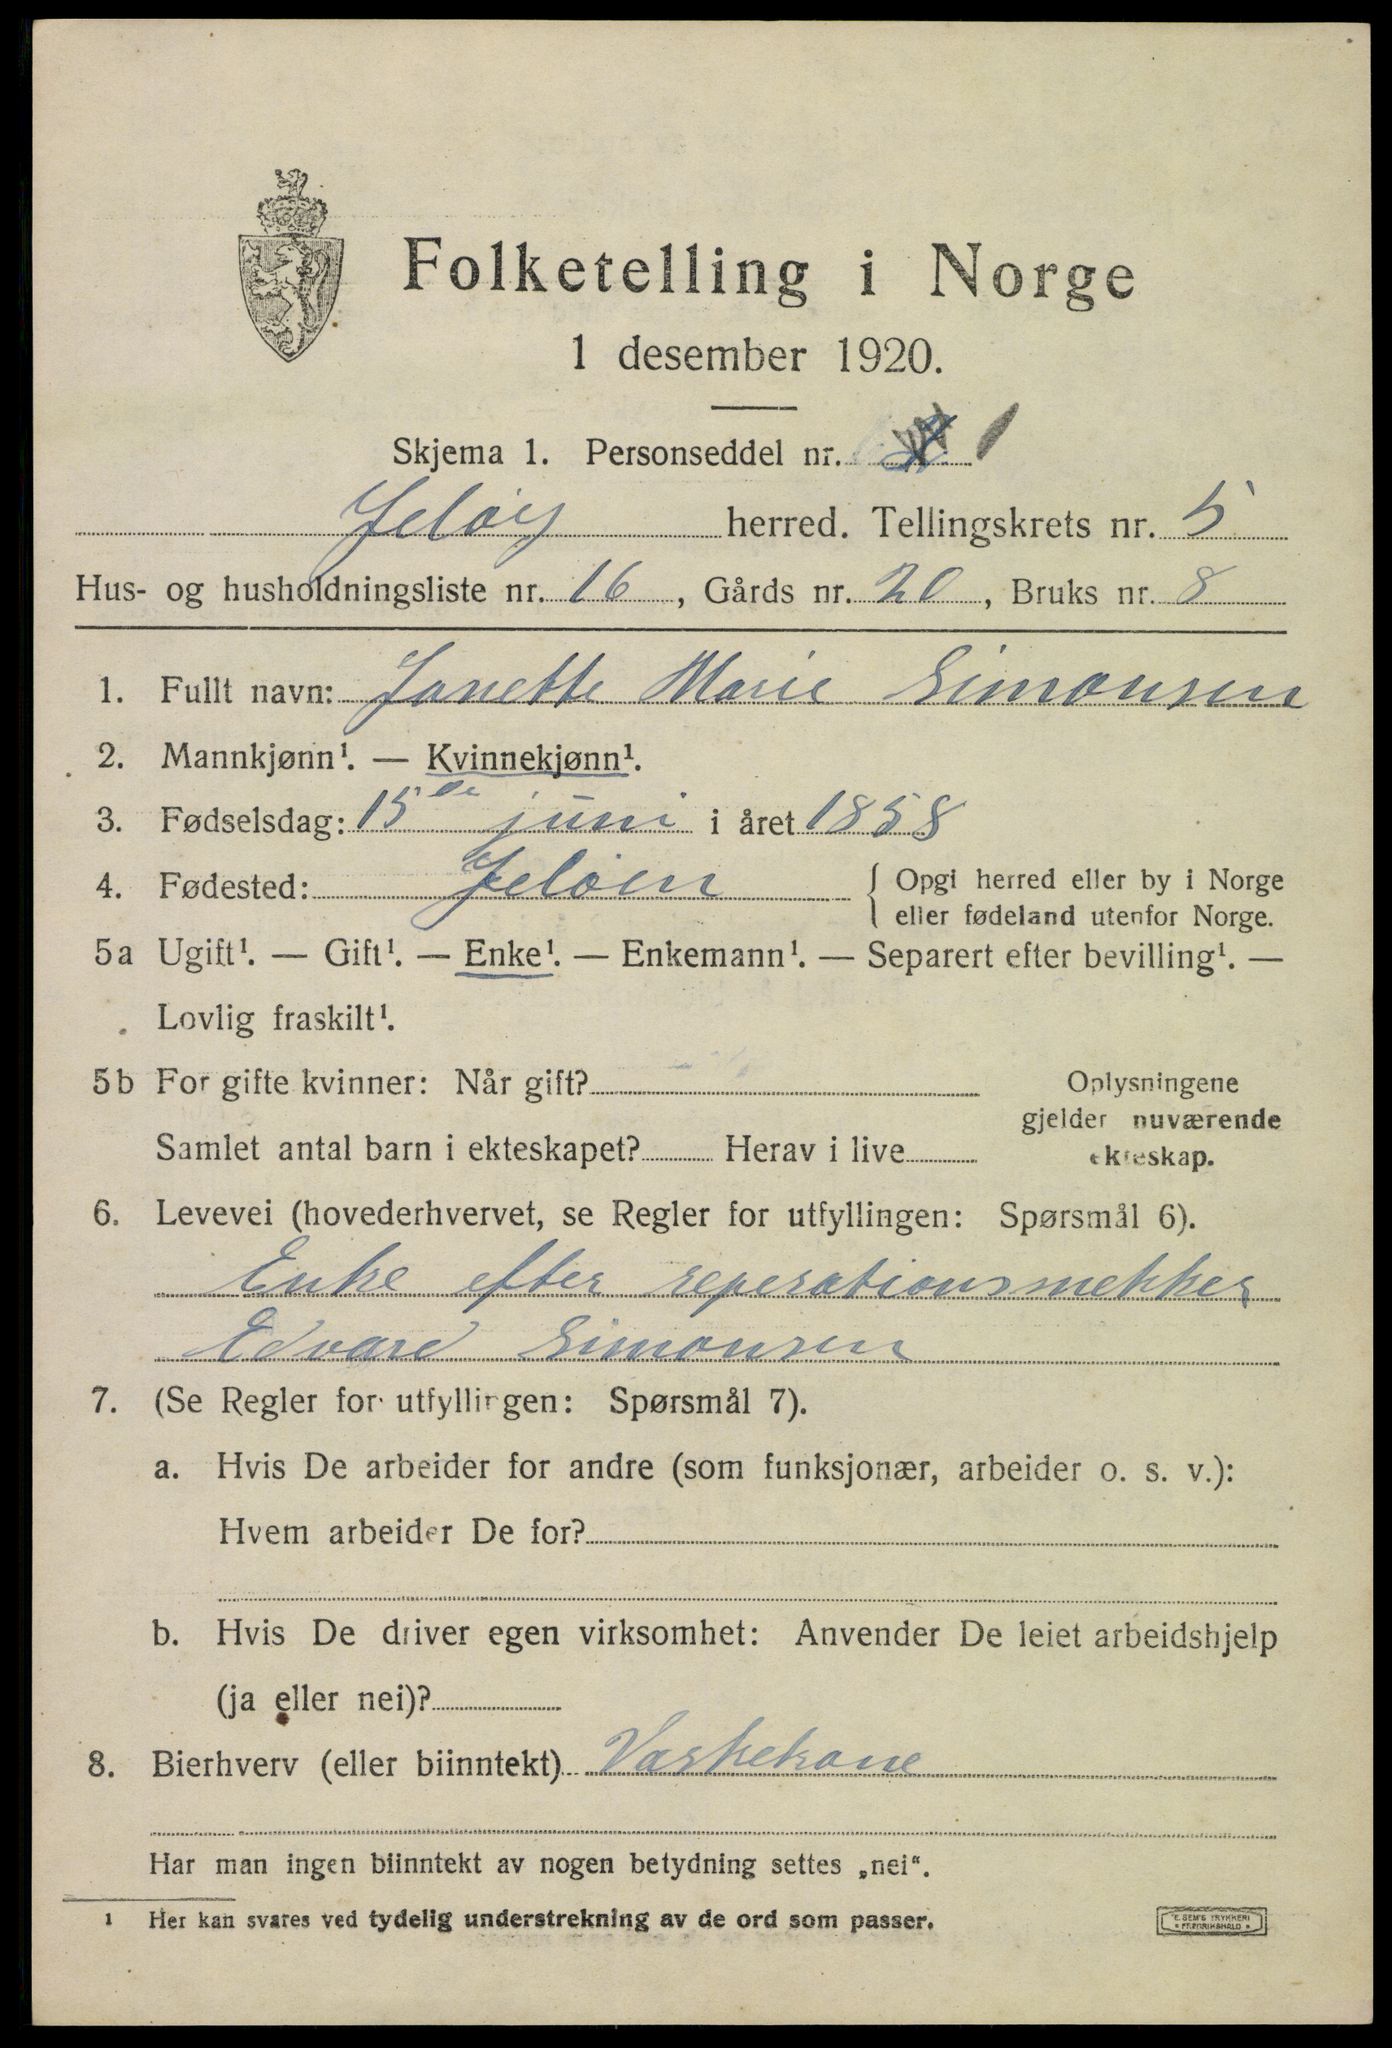 Folketelling i Norge
1 desember 1920.
Skjema 1. Personseddel nr. 1
Jeløy herred. Tellingskrets nr. 5
Hus- og husholdningsliste nr. 16, Gårds nr. 20, Bruks nr. 8
1. Fullt navn: Janette Marie Simonsen
2. Mannkjønn¹. — Kvinnekjønn¹.
3. Fødselsdag: 15de juni i året 1858
4. Fødested: Jeløen { Opgi herred eller by i Norge
eller fødeland utenfor Norge.
5a Ugift¹. — Gift¹. — Enke¹. — Enkemann¹. — Separert efter bevilling¹. —
Lovlig fraskilt¹.
5b For gifte kvinner: Når gift? Oplysningene
gjelder nuværende
Samlet antal barn i ekteskapet? Herav i live ekteskap.
6. Levevei (hovederhvervet, se Regler for utfyllingen: Spørsmål 6).
Enke efter reperationsmekker
Edvard Simonsen
7. (Se Regler for utfyllingen: Spørsmål 7).
a. Hvis De arbeider for andre (som funksjonær, arbeider o. s. v.):
Hvem arbeider De for?
b. Hvis De driver egen virksomhet: Anvender De leiet arbeidshjelp
(ja eller nei)?
8. Bierhverv (eller biinntekt) Vaskekone
Har man ingen biinntekt av nogen betydning settes „nei“.
1 Her kan svares ved tydelig understrekning av de ord som passer.
E. SEM'S TRYKKERI
FREDRIKSHALD